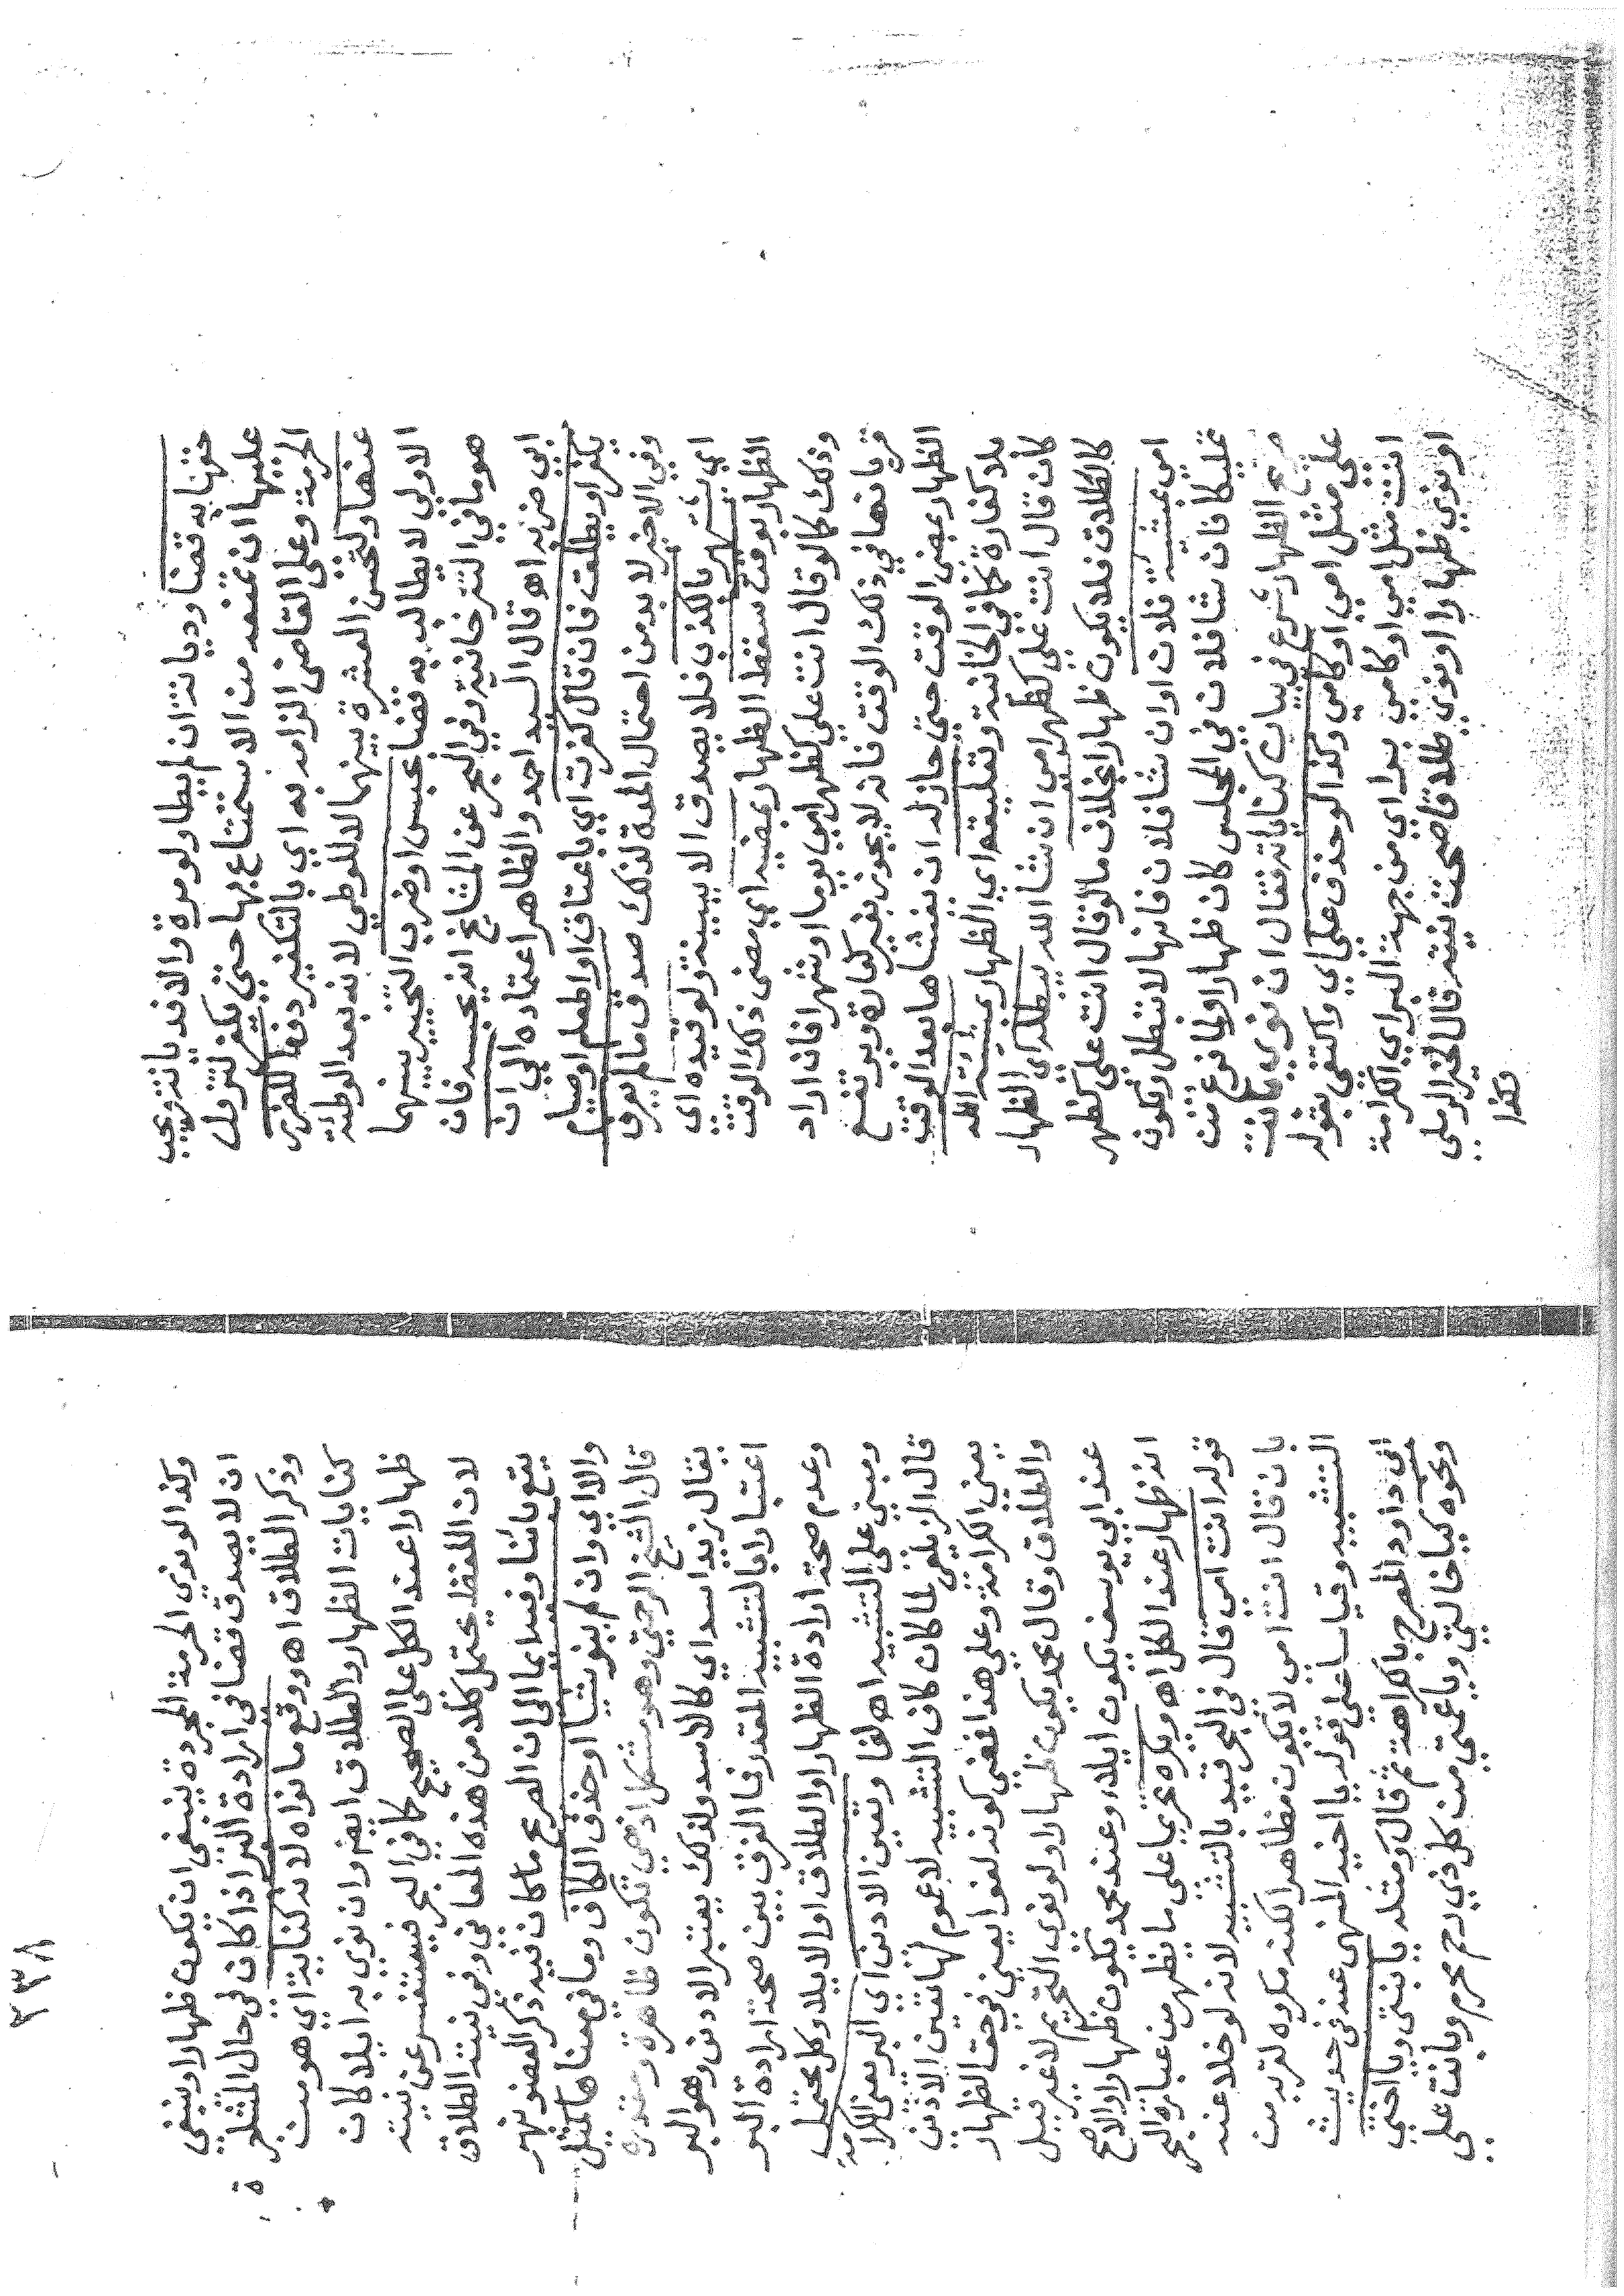 حقها به قضا وديانة ان لم يطا ولو مرة والا فديانة ويجب
عليها ان تمنعه من الاستمتاع بها حتى يكفر لتزول
الحرمة وعلى القاضى الزامه به اي بالتكفير دفعا للضرر
عنها ولحق العشرة بينهما لا للوطى لانه بعد الوطئة
الاولى لا يطالب به قضا بحبس او ضرب التخيير بينهما
هو ما في التترخانية وفي البحر عن المشايخ انه يحبسه فان
ابى ضربه اهو قال السيد احمد والظاهر اعتماده الى ان
يكفر او يطلق فان قال كفرت اي باعتاق او اطعام او صيام
وفي الاخير لا بد من احتمال المدة لذلك صدق ما لم يعرف
اي يشتهر بالكذب فلا يصدق الا ببينة ولو قيده اى
الظهار بوقت سقط الظهار بمضيه اي مضى ذلك الوقت
وذلك كما لو قال انت علي كظهر امي يوما او شهرا فان اراد
قربانها في ذلك الوقت فانه لا يجوز بغير كفارة ويرتفع
الظهار بمضى الوقت حتى جاز له ان يغشاها بعد الوقت
بلا كفارة كما في الخانية وتعليقه اي الظهار بمشيئة الله
كأن قال انت علي كظهر امي ان شا الله يبطله اي الظهار
كالطلاق فلا يكون ظهارا بخلاف ما لو قال انت على كظهر
امى بمشيئة فلان او ان شا فلان فانها لا تبطل وتكون
تمليكا فان شا فلان في المجلس كان ظهارا ولما فرغ من
صريح الظهار شرع في بيان كناياته فقال ان نوى بانت
على مثل امي او كامي وكذا لو حذف علي اي واكتفى بقوله
انت مثل امي او كامي برا اي من جهة البر اي الكرامة
او نوى ظهارا او نوى طلاقا صحت نيته قال الخير الرملي
وكذا
٢٣٨
وكذا لو نوى الحرمة المجردة ينبغى ان يكون ظهارا وينبغى
ان لا يصدق قضا فى ارادة البر اذا كان في حال المشاجرة
وذكر الطلاق اهـ ووقع ما نواه لانه كناية اي هو من
كنايات الظهار والطلاق ايضا وان نوى به ايلا كان
ظهارا عند الكل على الصحيح كما في البحر فيستفسر عن نيته
لان اللفظ يحتمل كلا من هذه المعاني وفي نيته الطلاق
يقع بائنا وفيه ايما الى ان الصريح ما كان فيه ذكر العضو نهر
والا اي وان لم ينو شيا او حذف الكاف وما في معناها كمثل
قال الشيخ الرحمتي وهو مشكل اذ هي تكون ظاهرة ومقدرة
يقال زيد اسد اي كالاسد ولذلك يعتبر الادنى وهو البر
اعتبارا بالتشبيه المقدر فما الفرق بين صحة ارادة البر
وعدم صحة ارادة الظهار او الطلاق او الايلا وكل محتمل
ومبني على التشبيه اهـ لغا وتعين الادنى اي البر يعنى الكرامة
قال الزيلعي لما كان كاف التشبيه لا عموم لها تعين الادنى
يعنى الكرامة وعلى هذا فمعنى كونه لغوا يعنى في حق الظهار
والطلاق وقال محمد يكون ظهارا ولو نوى التحريم لا غير قيل
عند ابي يوسف يكون ايلاء وعند محمد يكون ظهارا والاصح
انه ظهار عند الكل اهـ ويكره تحريما على ما يظهر من عبارة البحر
قوله انت امى قال في البحر قيد بالتشبيه لانه لو خلا عنه
بان قال انت امى لا يكون مظاهرا لكنه مكروه لقربه من
التشبيه وقياسا على قوله يا اخيه المنهى عنه فى حديث
ابى داود المصرح بالكراهة ثم قال ومثله يا بنتى ويا اختي
ونحوه كيا خالتي ويا عمتي من كل ذي رحم محرم وبانت على